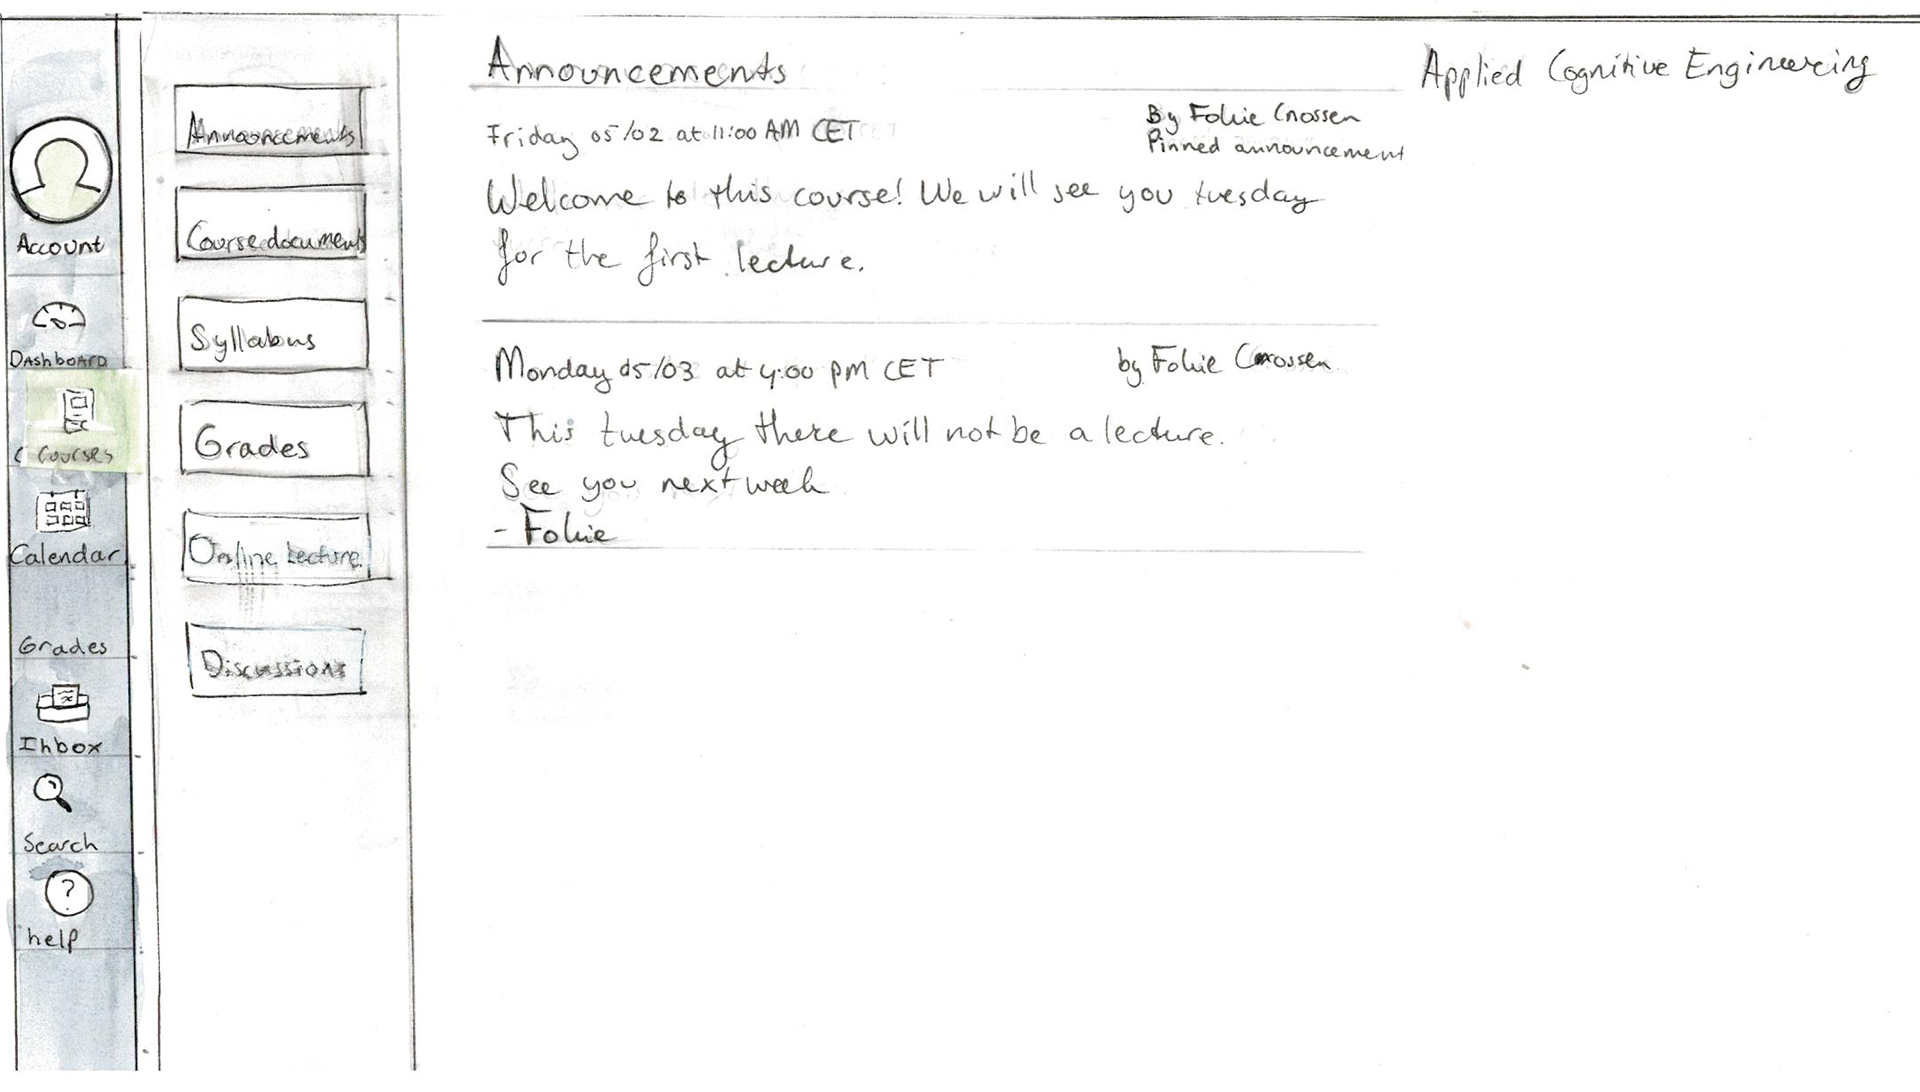 Account
Dashboard
Courses
Calendar
Grades
Inbox
Search
help
Announcements
Course documents
Syllabus
Grades
Online Lecture
Discussions
Announcements
Applied Cognitive Engineering
Friday 05/02 at 11:00 AM CET
By Fokie Cnossen
Pinned announcement
Welcome to this course! We will see you tuesday
for the first lecture.
Monday 05/03 at 4:00 pm CET
by Fokie Cnossen
This tuesday there will not be a lecture.
See you next week
- Fokie